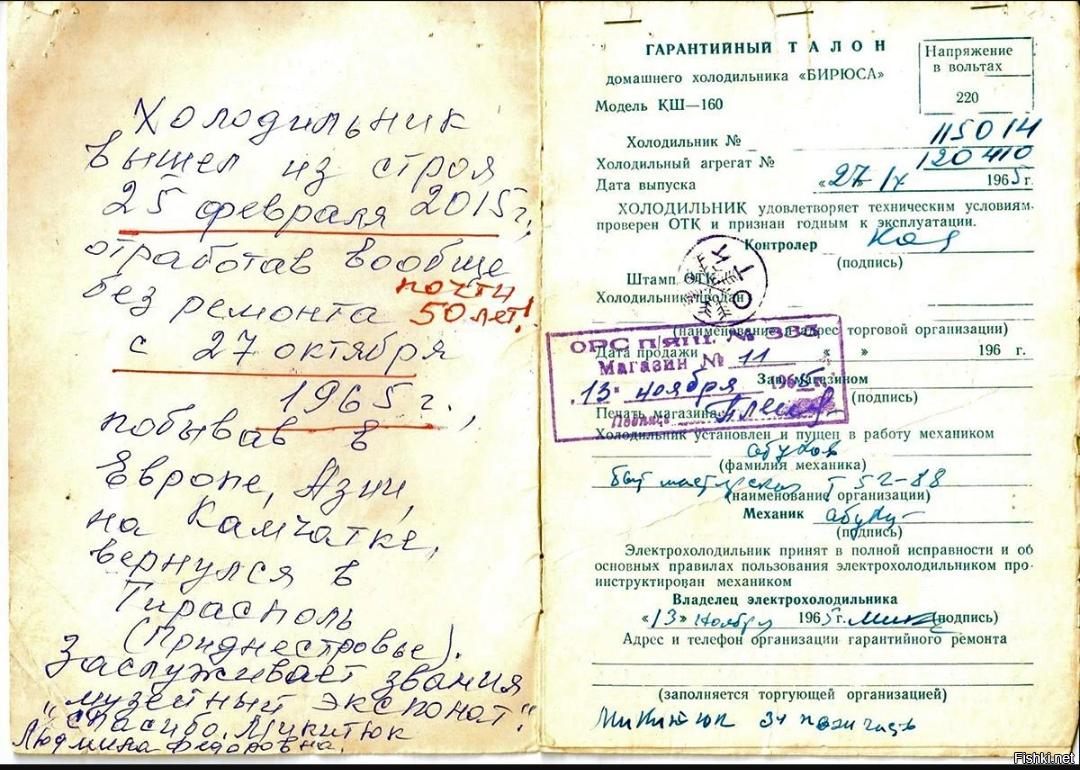 Холодильник
вышел из строя
25 февраля 2015 г.,
отработав вообще
без ремонта почти
50 лет!
с 27 октября
1965 г.,
побывав в
Европе, Азии,
на Камчатке,
вернулся в
Тирасполь
(Приднестровье).
Заслуживает звания
"музейный экспонат".
Спасибо. Микитюк
Людмила Федоровна.
ГАРАНТИЙНЫЙ ТАЛОН
домашнего холодильника «БИРЮСА»
Модель КШ—160
Напряжение
в вольтах
220
Холодильник № 115014
Холодильный агрегат № 120410
Дата выпуска «27» IX 1965 г.
ХОЛОДИЛЬНИК удовлетворяет техническим условиям.
проверен ОТК и признан годным к эксплуатации.
Контролер
(подпись)
Штамп ОТК
ОТК
Холодильник продан
(наименование и адрес торговой организации)
ОРС п/ящ. №
Магазин № 11
13 ноября 1965 г.
Подпись
Дата продажи « » 196 г.
Зав. магазином
(подпись)
Печать магазина
Холодильник установлен и пущен в работу механиком
(фамилия механика)
(наименование организации)
Механик
(подпись)
Электрохолодильник принят в полной исправности и об
основных правилах пользования электрохолодильником про-
инструктирован механиком
Владелец электрохолодильника
«13» ноября 1965 г. (подпись)
Адрес и телефон организации гарантийного ремонта
(заполняется торгующей организацией)
Микитюк
Fishki.net